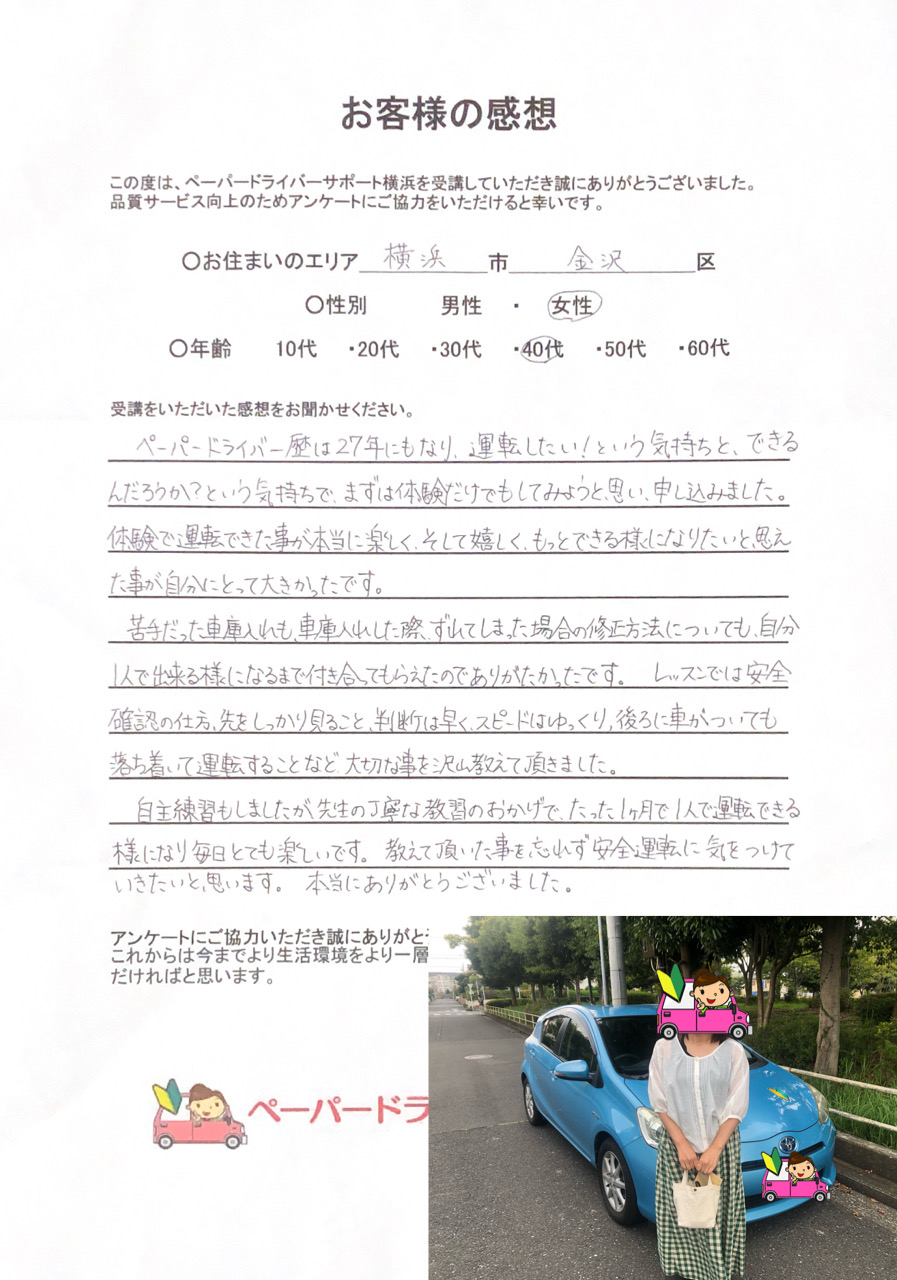 お客様の感想
この度は、ペーパードライバーサポート横浜を受講していただき誠にありがとうございました。
品質サービス向上のためアンケートにご協力をいただけると幸いです。
〇お住まいのエリア 横浜 市 金沢 区
〇性別 男性 ・ 女性
〇年齢 10代 ・20代 ・30代 ・40代 ・50代 ・60代
受講をいただいた感想をお聞かせください。
ペーパードライバー歴は27年にもなり、運転したい!という気持ちと、できる
んだろうか?という気持ちで、まずは体験だけでもしてみようと思い、申し込みました。
体験で運転できた事が本当に楽しく、そして嬉しく、もっとできる様になりたいと思え
た事が自分にとって大きかったです。
苦手だった車庫入れも、車庫入れした際、ずれてしまった場合の修正方法についても、自分
1人で出来る様になるまで付き合ってもらえたのでありがたかったです。 レッスンでは安全
確認の仕方、先をしっかり見ること、判断は早く、スピードはゆっくり、後ろに車がついても
落ち着いて運転することなど、大切な事を沢山教えて頂きました。
自主練習もしましたが、先生の丁寧な教習のおかげで、たった1ヶ月で1人で運転できる
様になり毎日とても楽しいです。 教えて頂いた事を忘れず安全運転に気をつけて
いきたいと思います。 本当にありがとうございました。
アンケートにご協力いただき誠にありがと
これからは今までより生活環境をより一層
だければと思います。
ペーパードラ